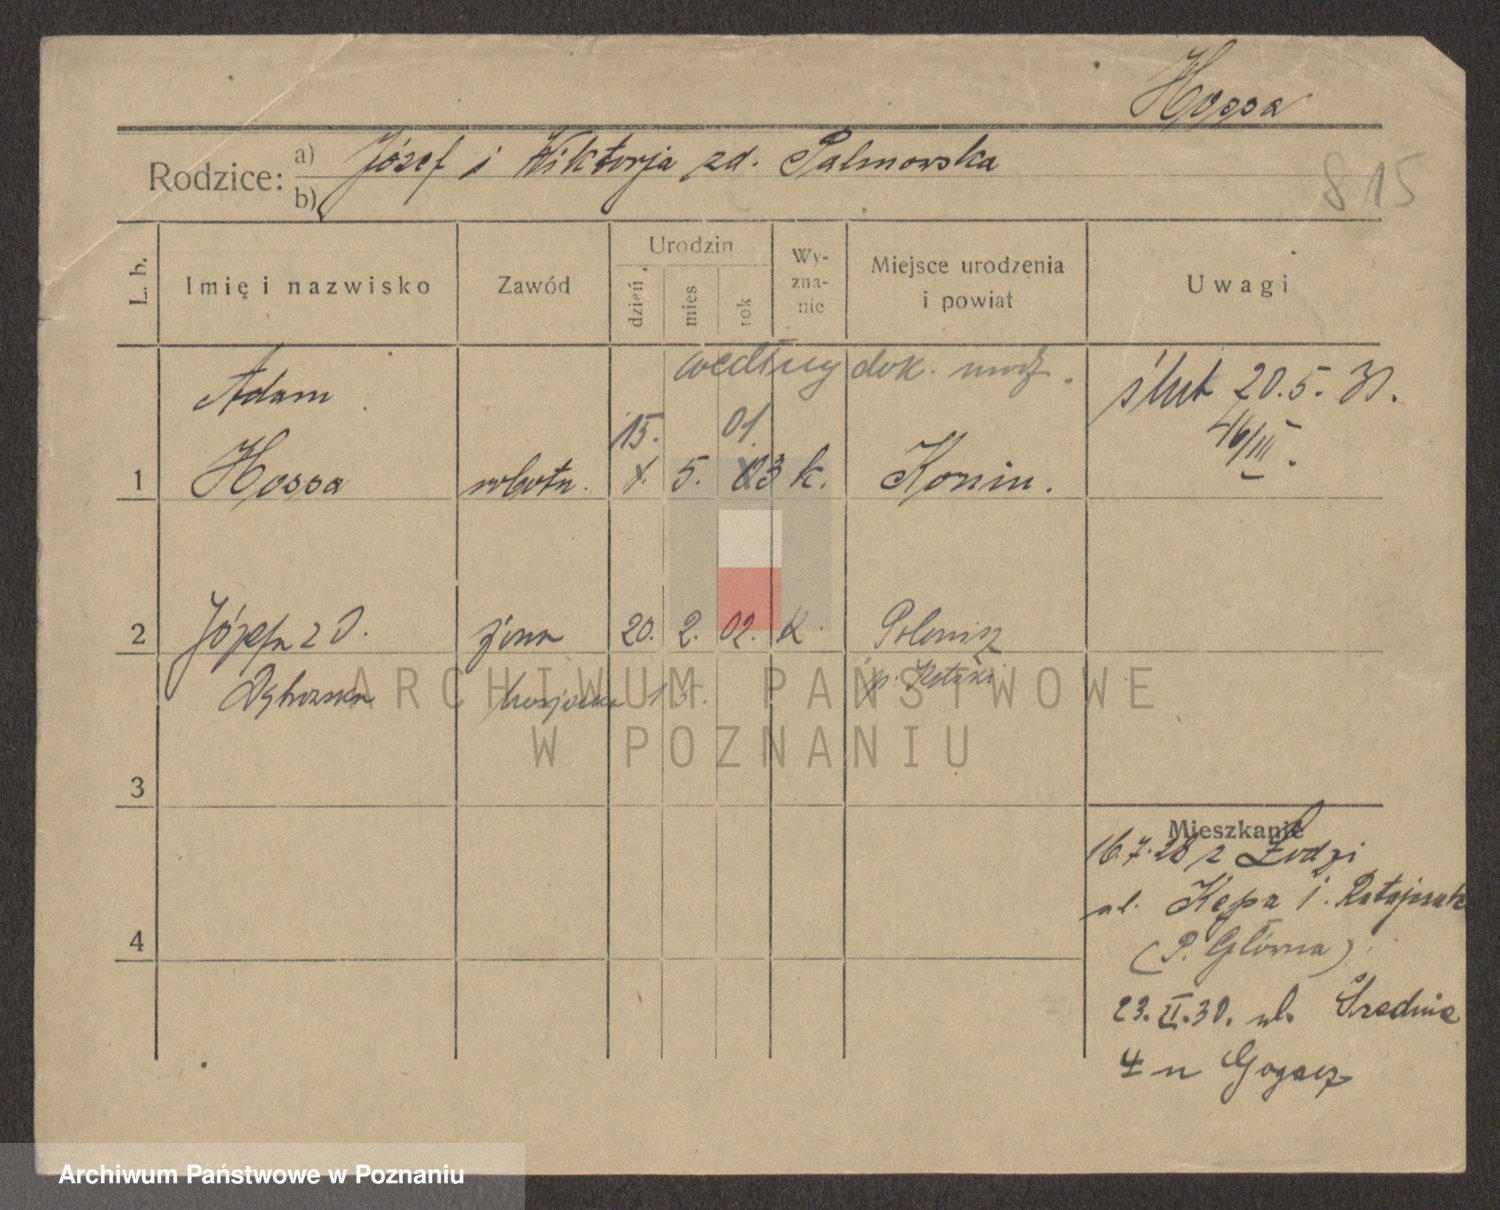 Hossa
Rodzice: a) Józef i Wiktorja zd. Palmowska
b)
815
L. b.
Imię i nazwisko
Zawód
Urodzin
dzień
mies
rok
Wy-
zna-
nie
Miejsce urodzenia
i powiat
Uwagi
według dok. urodz.
Adam
15. 01.
1 Hossa robotn. 1. 5. 03 k. Konin.
ślub 20.5.30.
46/III.
2 Józefa zd. żona 20. 2. 02. k. Polonisz
Dąbrowska p. Kolski
3
4
Mieszkanie
16.7.28 z Łodzi
ul. Kępa 1. Ratajczak
(P. Główna)
23.II.30. ul. Średnia
4 u Gogacz
ARCHIWUM PAŃSTWOWE
W POZNANIU
Archiwum Państwowe w Poznaniu